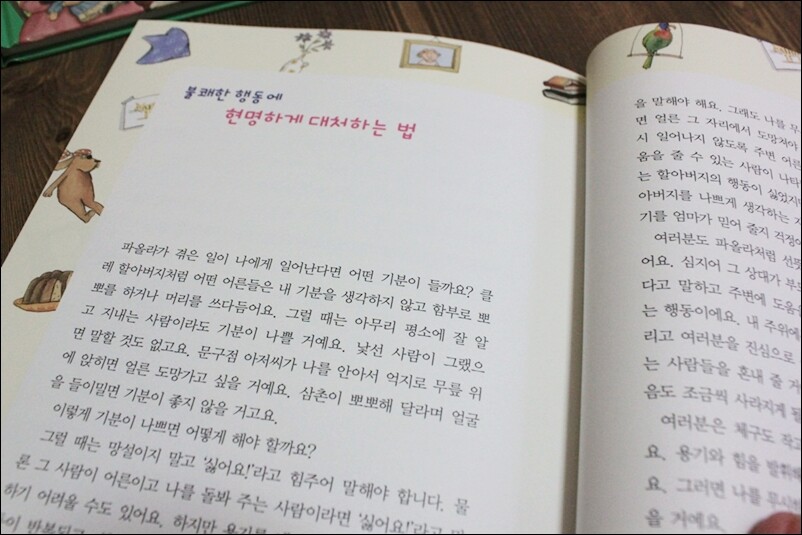 불쾌한 행동에
현명하게 대처하는 법
파올라가 겪은 일이 나에게 일어난다면 어떤 기분이 들까요? 클
레 할아버지처럼 어떤 어른들은 내 기분을 생각하지 않고 함부로 뽀
뽀를 하거나 머리를 쓰다듬어요. 그럴 때는 아무리 평소에 잘 알
고 지내는 사람이라도 기분이 나쁠 거예요. 낯선 사람이 그랬으
면 말할 것도 없고요. 문구점 아저씨가 나를 안아서 억지로 무릎 위
에 앉히면 얼른 도망가고 싶을 거예요. 삼촌이 뽀뽀해 달라며 얼굴
을 들이밀면 기분이 좋지 않을 거고요.
이렇게 기분이 나쁘면 어떻게 해야 할까요?
그럴 때는 망설이지 말고 ‘싫어요!’라고 힘주어 말해야 합니다. 물
론 그 사람이 어른이고 나를 돌봐 주는 사람이라면 ‘싫어요!’라고 말
하기 어려울 수도 있어요. 하지만 용기를
반복되고
을 말해야 해요. 그래도 나를
면 얼른 그 자리에서 도망쳐야
시 일어나지 않도록 주변 어른
움을 줄 수 있는 사람이 나타
는 할아버지의 행동이 싫었지만
아버지를 나쁘게 생각하는
기를 엄마가 믿어 줄지 걱정
여러분도 파올라처럼
어요. 심지어 그 상대가
다고 말하고 주변에 도움을
는 행동이에요. 내 주위에
리고 여러분을 진심으로
는 사람들을 혼내 줄
음도 조금씩 사라지게 될
여러분은 체구도 작고
요. 용기와 힘을 발휘해
요. 그러면 나를
을 거예요.